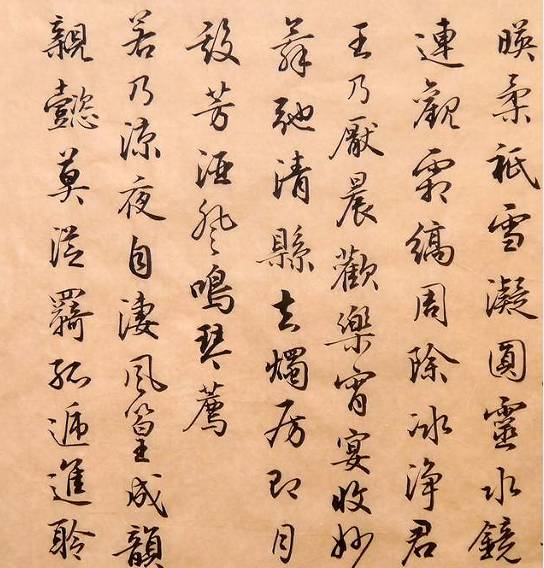 暎柔祇雪凝圓靈水鏡
連觀霜縞周除冰淨君
王乃厭晨歡樂宵宴收妙
舞弛清縣去燭房即月
殿芳酒登鳴琴薦
若乃涼夜自淒風篁成韻
親懿莫從羇孤遞進聆